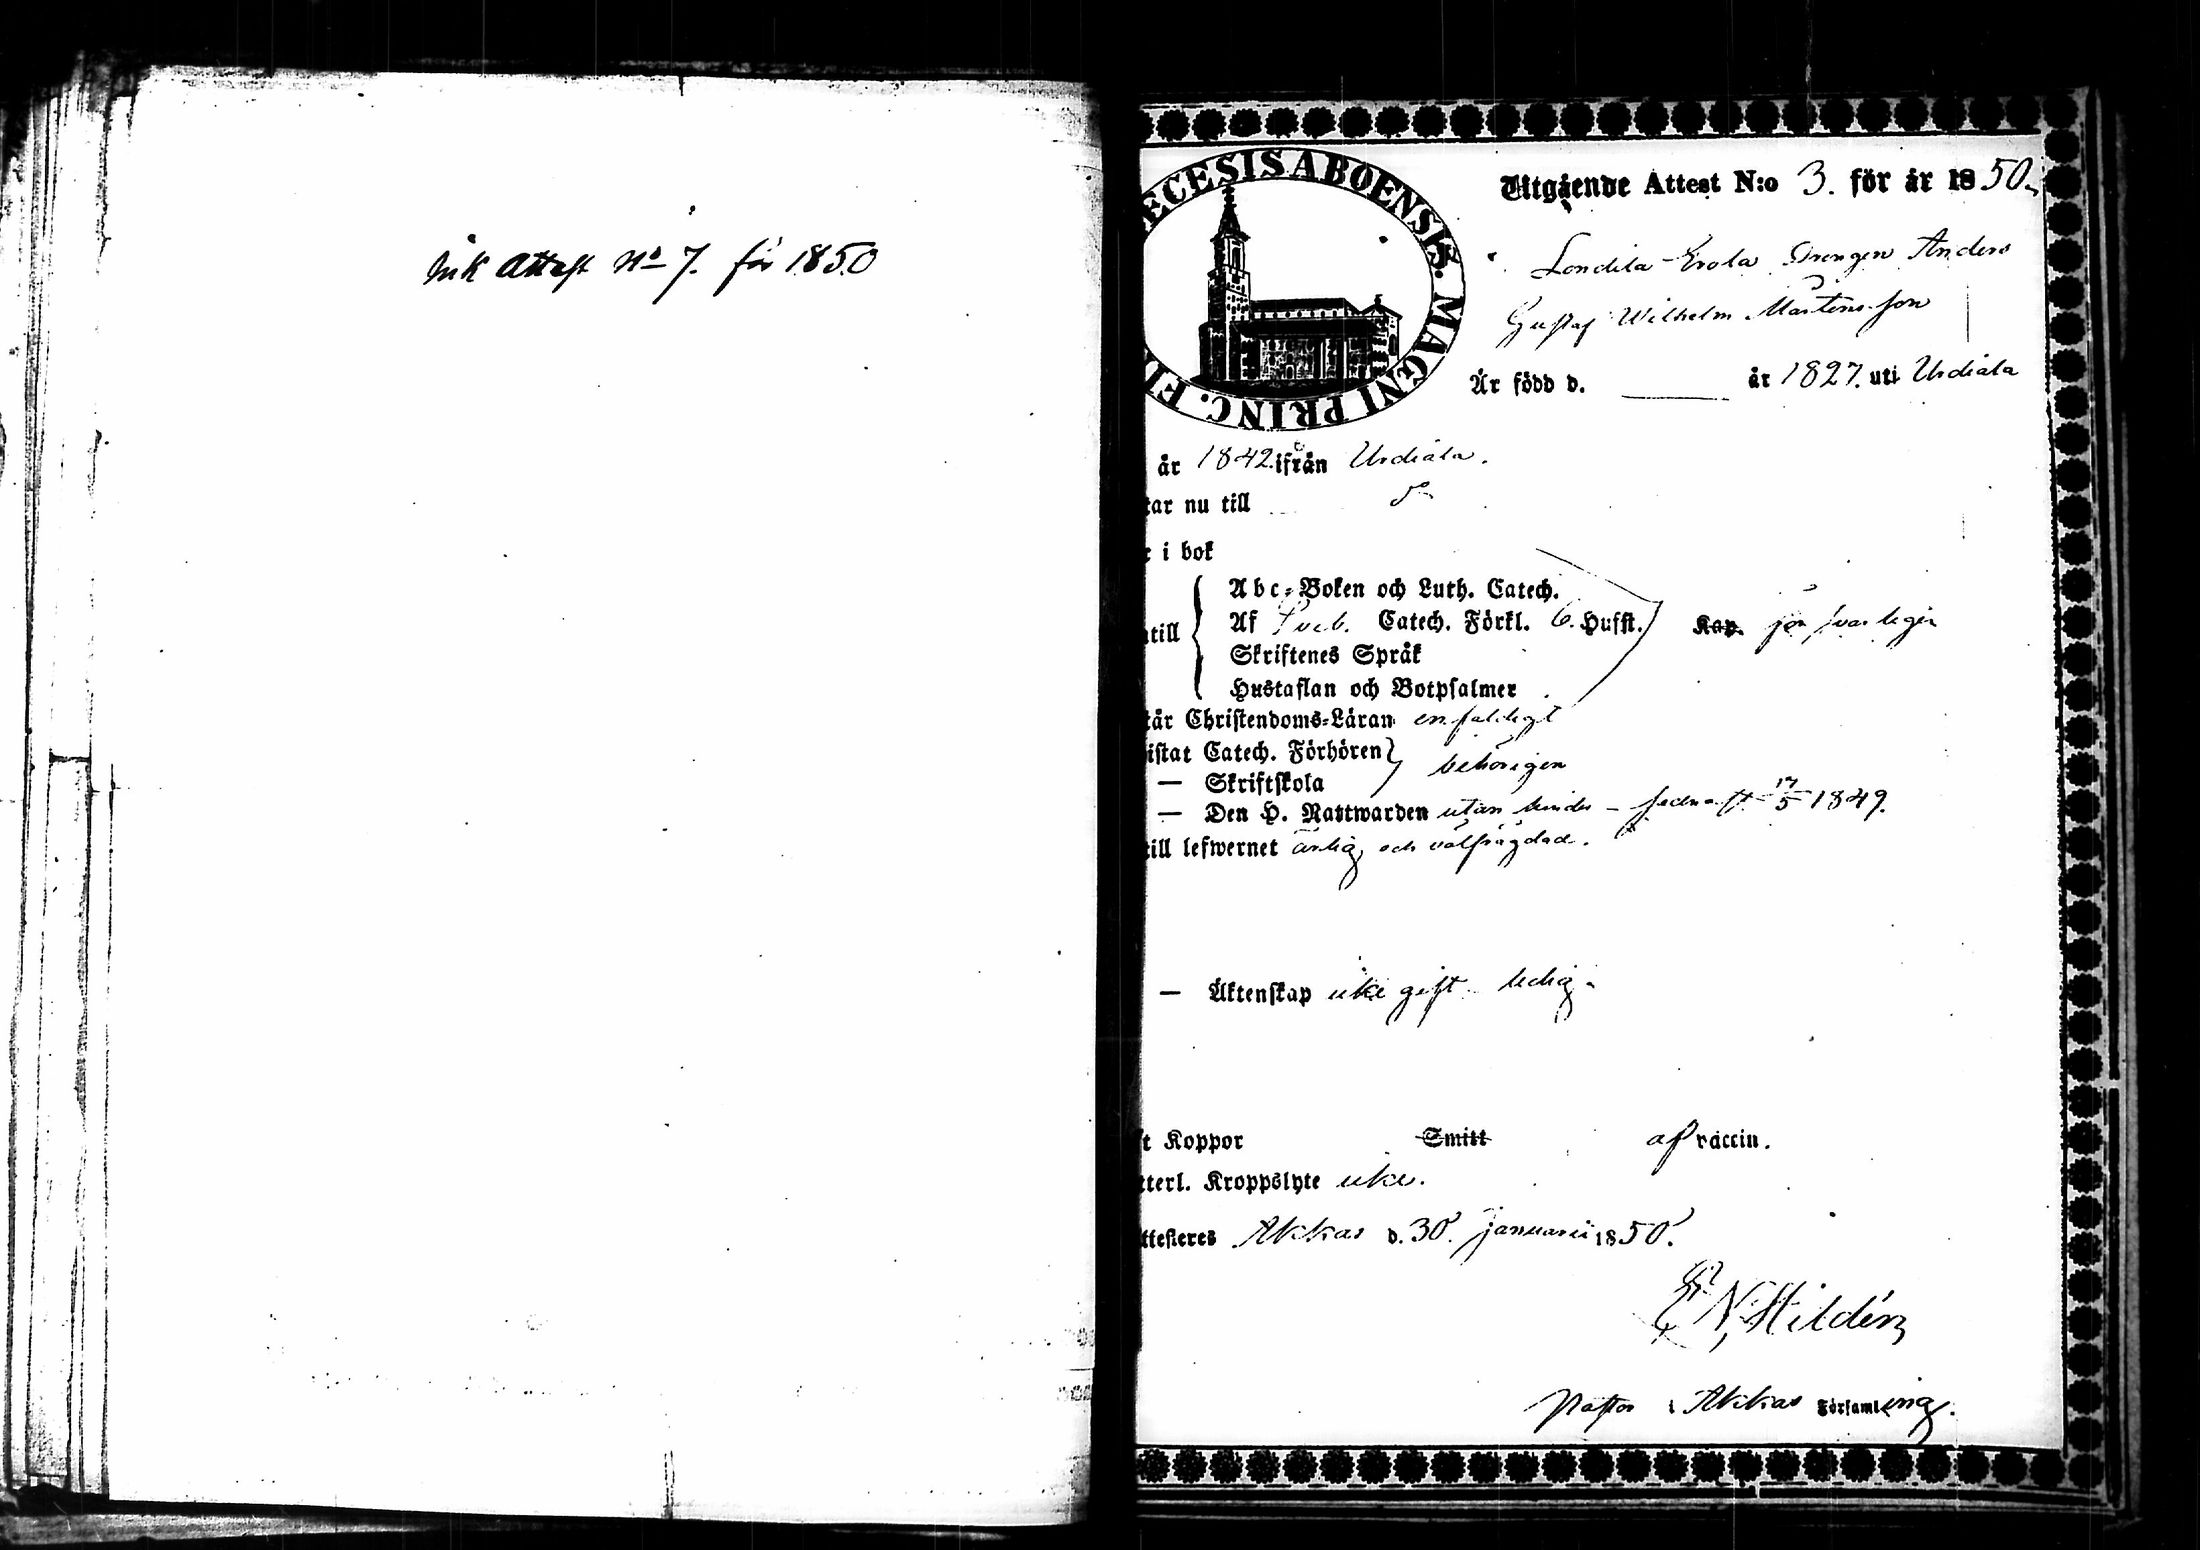 Ink Attest No 7. för 1850
ECESIS ABOENSIS. MAGNI PRINC. FI
Utgående Attest N:o 3. för år 1850.
Londila Erola Drengen Anders
Gustaf Wilhelm Mårtensson
Är född d. år 1827. uti Urdiala
år 1842. ifrån Urdiala.
tar nu till do
r i bok
Abc-Boken och Luth. Catech.
till Af Sveb. Catech. Förkl. 6. Hufst. Kap. försvarligen
Skriftenes Språk
Hustaflan och Botpsalmer
tår Christendoms-Läran enfaldigt
istat Catech. Förhören behörigen
— Skriftskola
— Den H. Nattwarden utan hinder - sednast 17/5 1849.
till lefwernet ärlig och välfrägdad.
— Äktenskap icke gift ledig.
t Koppor Smitt af vaccin.
tterl. Kroppslyte icke.
ttesteres Akkas d. 30. Januarii 1850.
E N Hildén
Pastor i Akkas Församling.